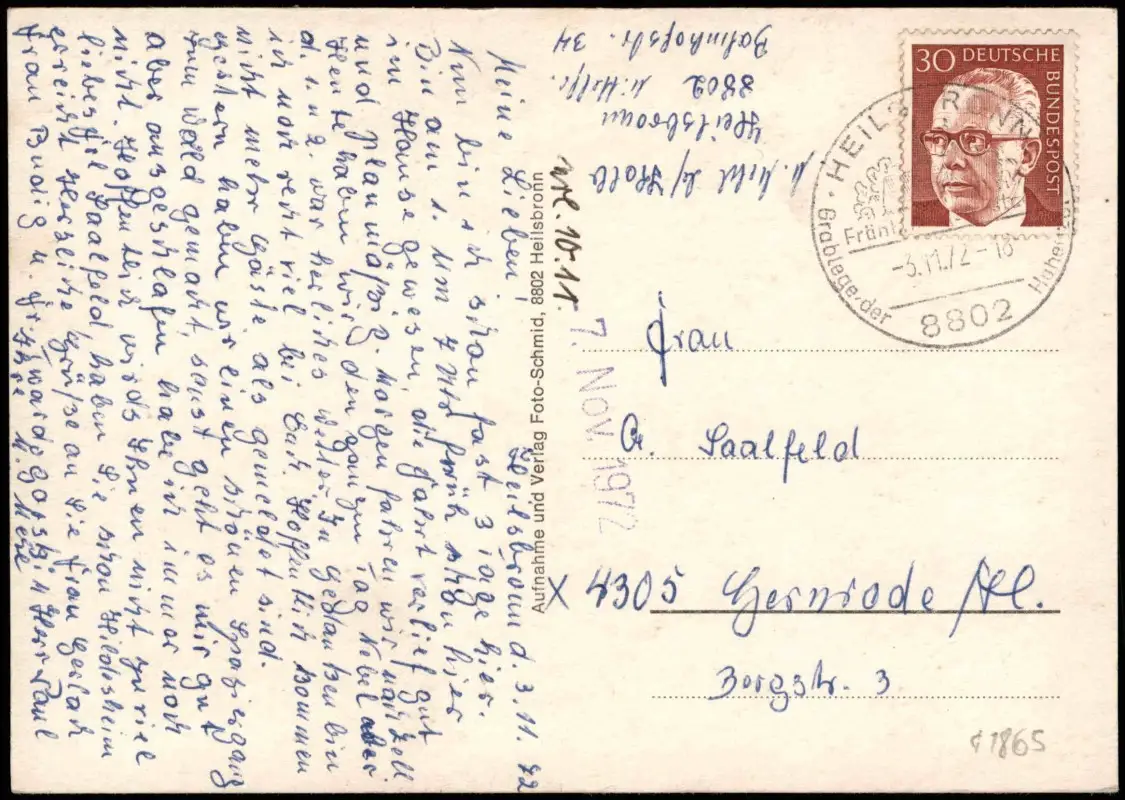 Heilsbronn d. 3.11.72
Meine Lieben!
Nun bin ich schon fast 3 Tage hier.
Bin am 1. um 7 Uhr früh schon hier
im Hause gewesen, die Fahrt verlief gut
und planmäßig. Morgen fahren wir nach Zell
Heute haben wir den ganzen Tag Nebel aber
d. 1. u 2. war herliches Wetter. In Gedanken bin
ich noch recht viel bei Euch. Hoffentlich kommen
nicht mehr Gäste als gemeldet sind.
Gestern haben wir einen schönen Spaziergang
zum Wald gemacht, sonst geht es mir gut
aber ausgeschlafen habe ich immer noch
nicht. Hoffentlich wirds Ihnen nicht zu viel
liebes Saalfeld haben Sie schon Hildesheim
erreicht. Herzliche Grüße an die Frau Gerlach
Frau Budig u.
Ihre M.
Heilsbronn
8802
Bahnhofstr. 34
Aufnahme und Verlag Foto-Schmid, 8802 Heilsbronn
10.11.
7. NOV. 1972
30 DEUTSCHE BUNDESPOST
HEILSBRONN
Grablege der
-3.11.72-18
8802
Frau
G. Saalfeld
X 4305 Gernrode/H.
Bergstr. 3
1865